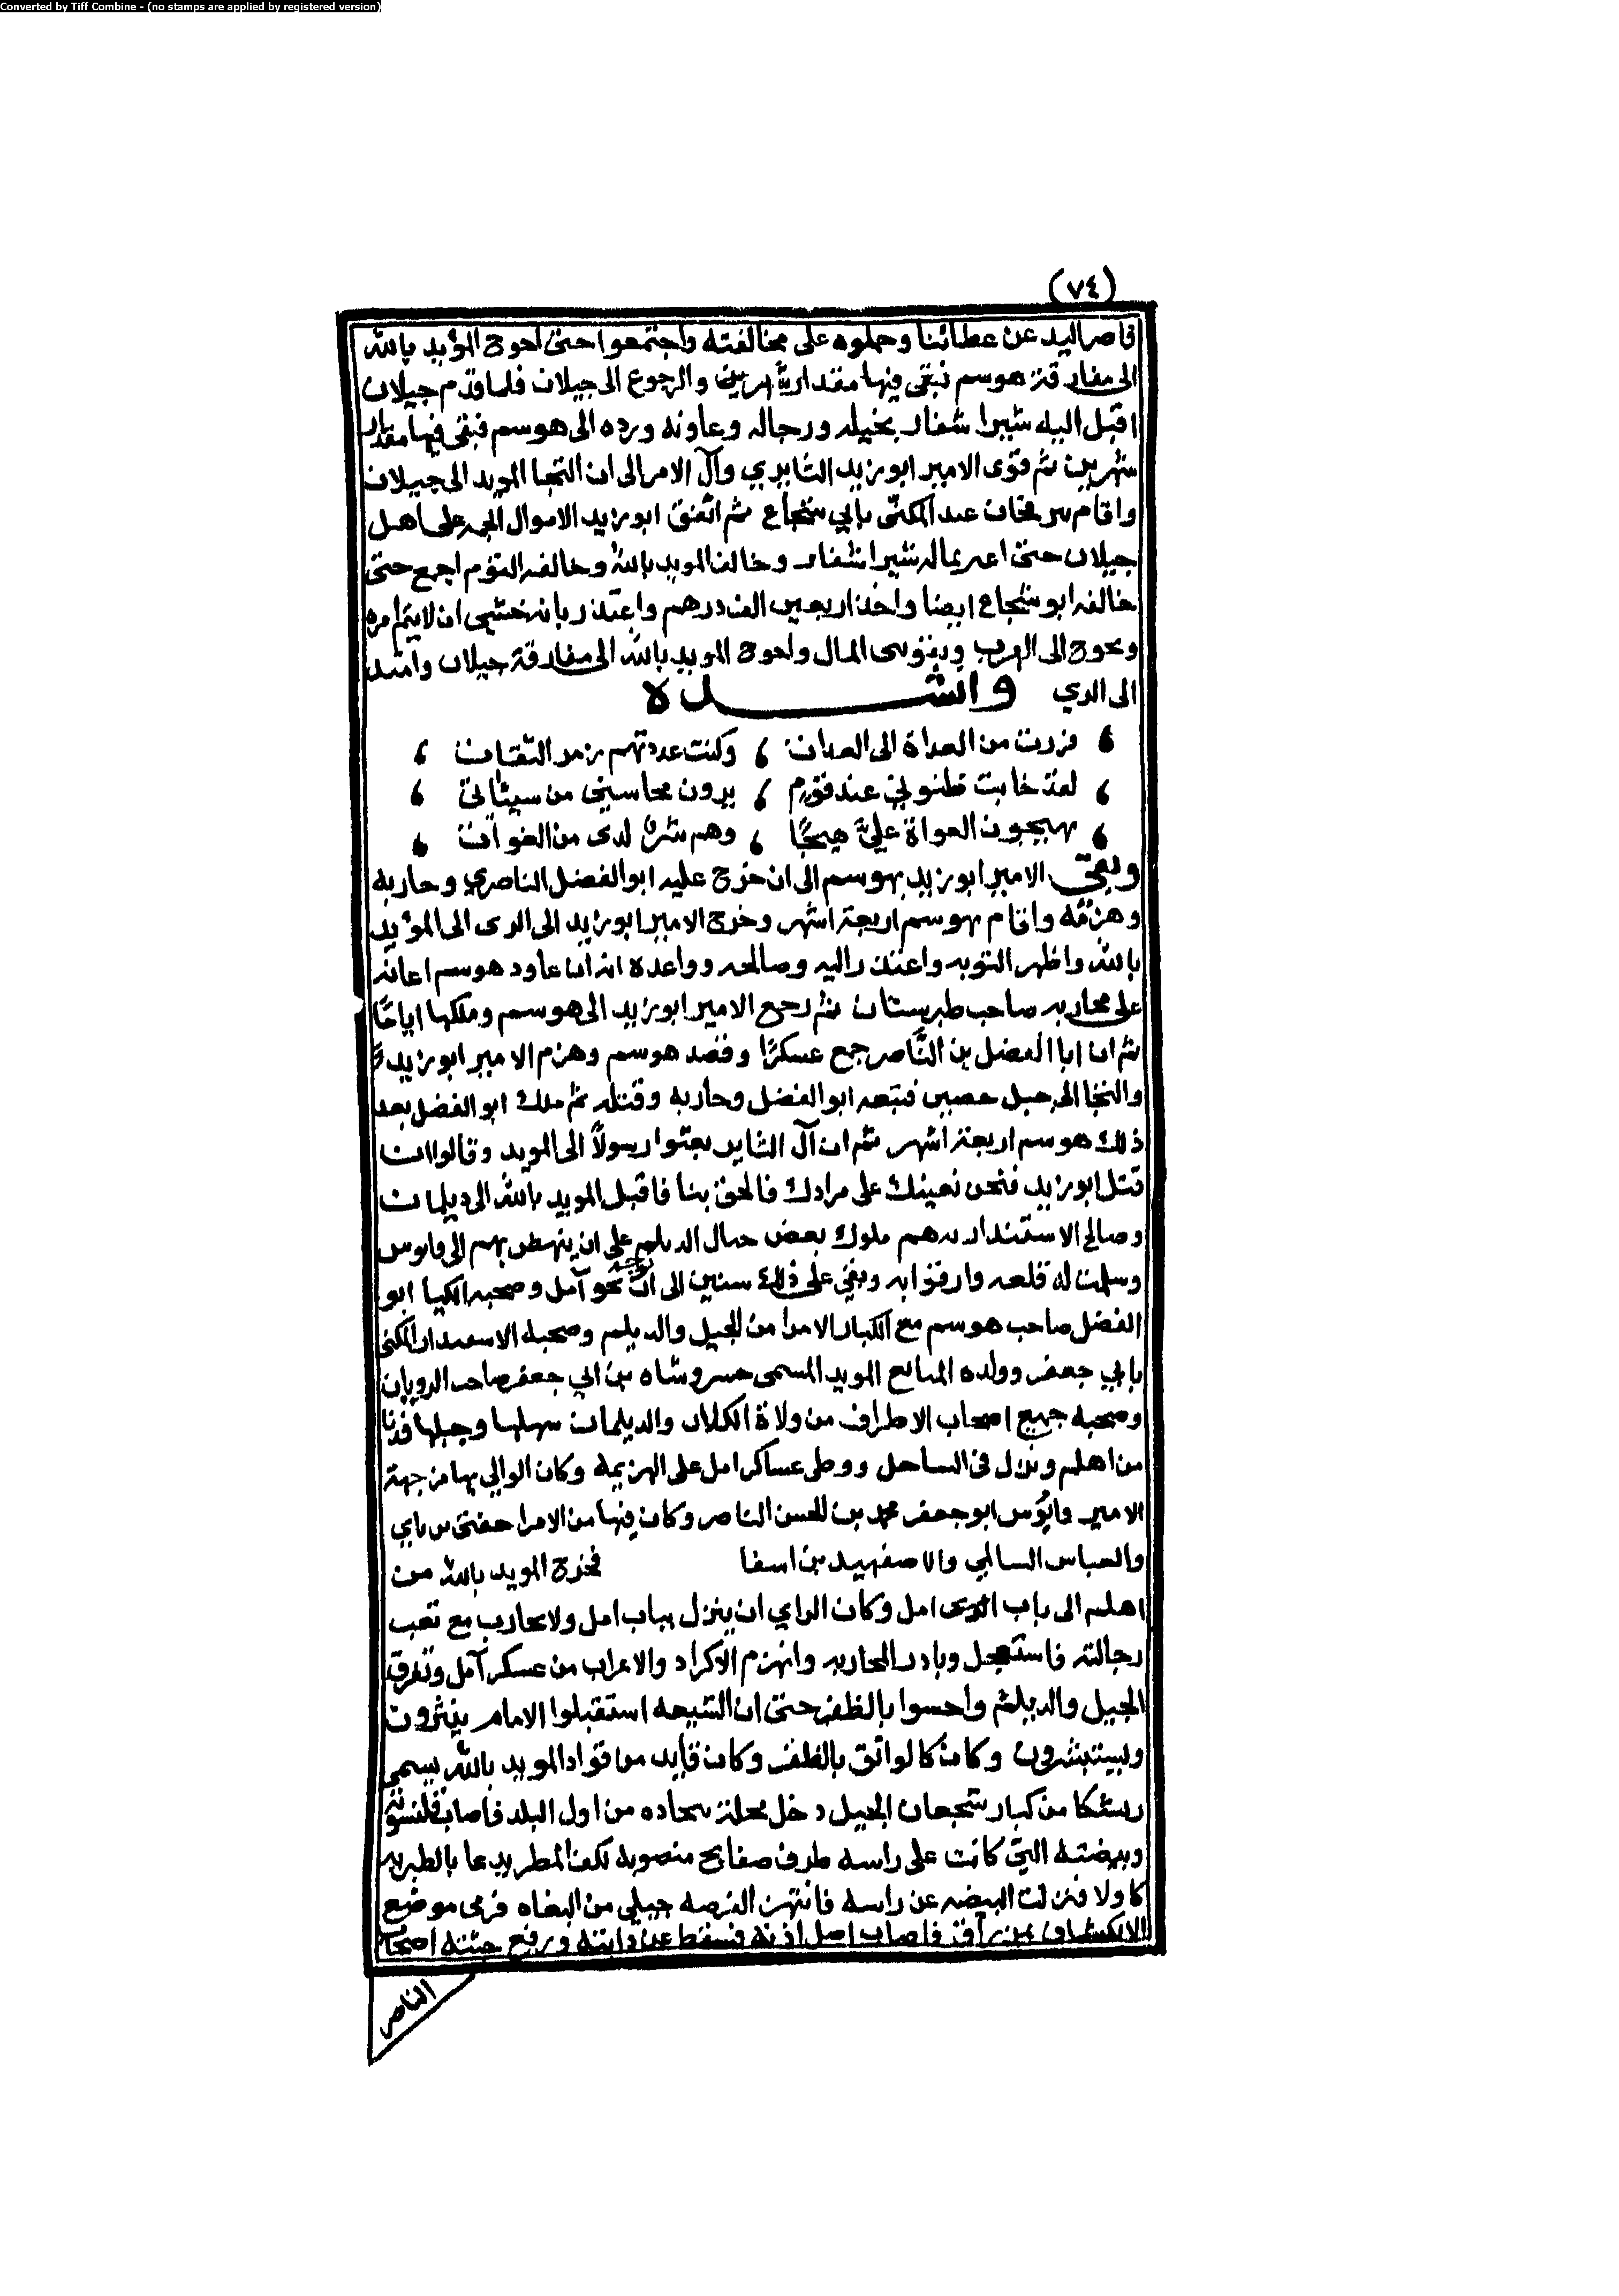 Converted by Tiff Combine - (no stamps are applied by registered version)
(٧٤)
قاصر اليد عن عطائنا وحملوه على مخالفته واجتمعوا حتى احوج المؤيد بالله
الى مفارقة هوسم فبقي فيها مقدار والرجوع الى جيلان فلما قدم جيلان
اقبل اليه شيرا شفار بخيله ورجاله وعاونه ورده الى هوسم فبقي فيها مقدار
شهرين ثم قوى الامير ابو زيد الثايري وآل الامر الى ان التجا المويد الى جيلان
واقام عند المكنّى بابي شجاع ثم انفق ابو زيد الاموال الجمه على اهل
جيلان حتى بماله شيرا شفار وخالف المويد بالله وخالفه القوم اجمع حتى
خالفه ابو شجاع ايضا واخذ اربعين الف درهم واعتذر بانه خشي ان لا يتم امره
ويحوج الى الهرب ويفوت المال واحوج المويد بالله الى مفارقة جيلان وامتد
الى الري وانشده
فررت من العداة الى العدات وكنت عددتهم زمر الثقات
لقد خابت ظنوني عند قوم يرون محاسني من سيئاتي
يهيجون الغواة عليّ هيجًا وهم شرٌ لدى من الغوات
وبقي الامير ابو زيد بهوسم الى ان خرج عليه ابو الفضل الناصري وحاربه
وهزمه واقام بهوسم اربعة اشهر وخرج الامير ابو زيد الى الرى الى المؤيد
بالله واظهر التوبه واعتذر اليه وصالحه وواعده انه ان عاود هوسم اعانه
على محاربه صاحب طبرستان ثم رجع الامير ابو زيد الى هوسم وملكها ايامًا
ثم ان ابا الفضل بن النّاصر جمع عسكرًا وقصد هوسم وهزم الامير ابو زيد
والتجا الى جبل فتبعه ابو الفضل وحاربه وقتله ثم ملك ابو الفضل بعد
ذلك هوسم اربعة اشهر ثم ان آل الثاير بعثوا رسولاً الى المويد وقالوا ان
قتل ابو زيد فنحن نعينك على مرادك فالحق بنا فاقبل المويد بالله الى ديلمان
وصالح الاستندار به وهم ملوك بعض جبال الديلم على ان ينهض بهم الى قابوس
وسلمت له قلعه وارفق به وبقي على ذلك سنين الى ان توجه نحو آمل وصحبه الكيا ابو
الفضل صاحب هوسم مع الكبار الامرا من الجيل والديلم وصحبه الاستندار المكنى
بابي جعفر وولده المبايع المويد المسمى خسروشاه بن ابي جعفر صاحب الرويان
وصحبه جميع اصحاب الاطراف من ولاة الكلار والديلمان سهلها وجبلها
من اهلم ونزل في الساحل ووطن عساكر امل على الهزيمه وكان الوالي بها من جهة
الامير قابُوس ابو جعفر محمد بن الحسن الناصر وكان فيها من الامرا
والعباس السالمي والاصفهيد بن اسفا فخرج المويد بالله من
اهلم الى باب امل وكان الراي ان ينزل بباب امل ولا يحارب مع تعب
رجالته فاستعجل وبادر المحاربه وانهزم الاكراد والاعراب من عسكر آمل وتفرق
الجيل والديلم واحسوا بالظفر حتى ان الشيعه استقبلوا الامام ينثرون
ويستبشرون وكان كالواثق بالظفر وكان قايد من قواد المويد بالله يسمى
من كبار شجعان الجيل دخل محلة من اول البلد فاصاب قلنسوته
وبيضته التي كانت على راسه طرف صفايح منصوبه لكف المطر
فنزلت البيضه عن راسه فانتهز الفرصه جيلي من فرمى موضع
الانكشاف فاصاب اصل اذنه فسقط عن دابته ورفع جثته اصحاب
الناصر